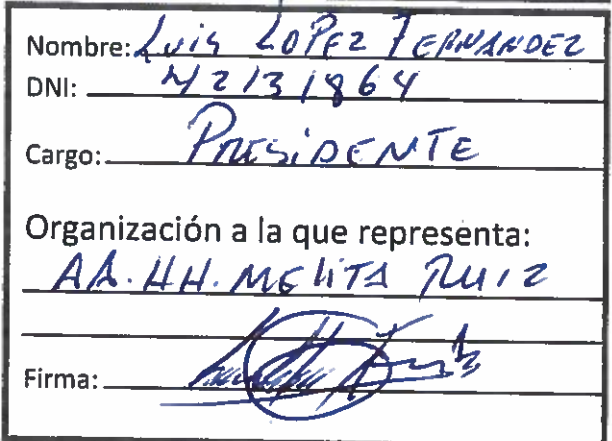 Nombre: Luis LOPEZ FERNANDEZ
DNI: 42131864
Cargo: PRESIDENTE
Organización a la que representa:
AA.HH. MELITA RUIZ
Firma: